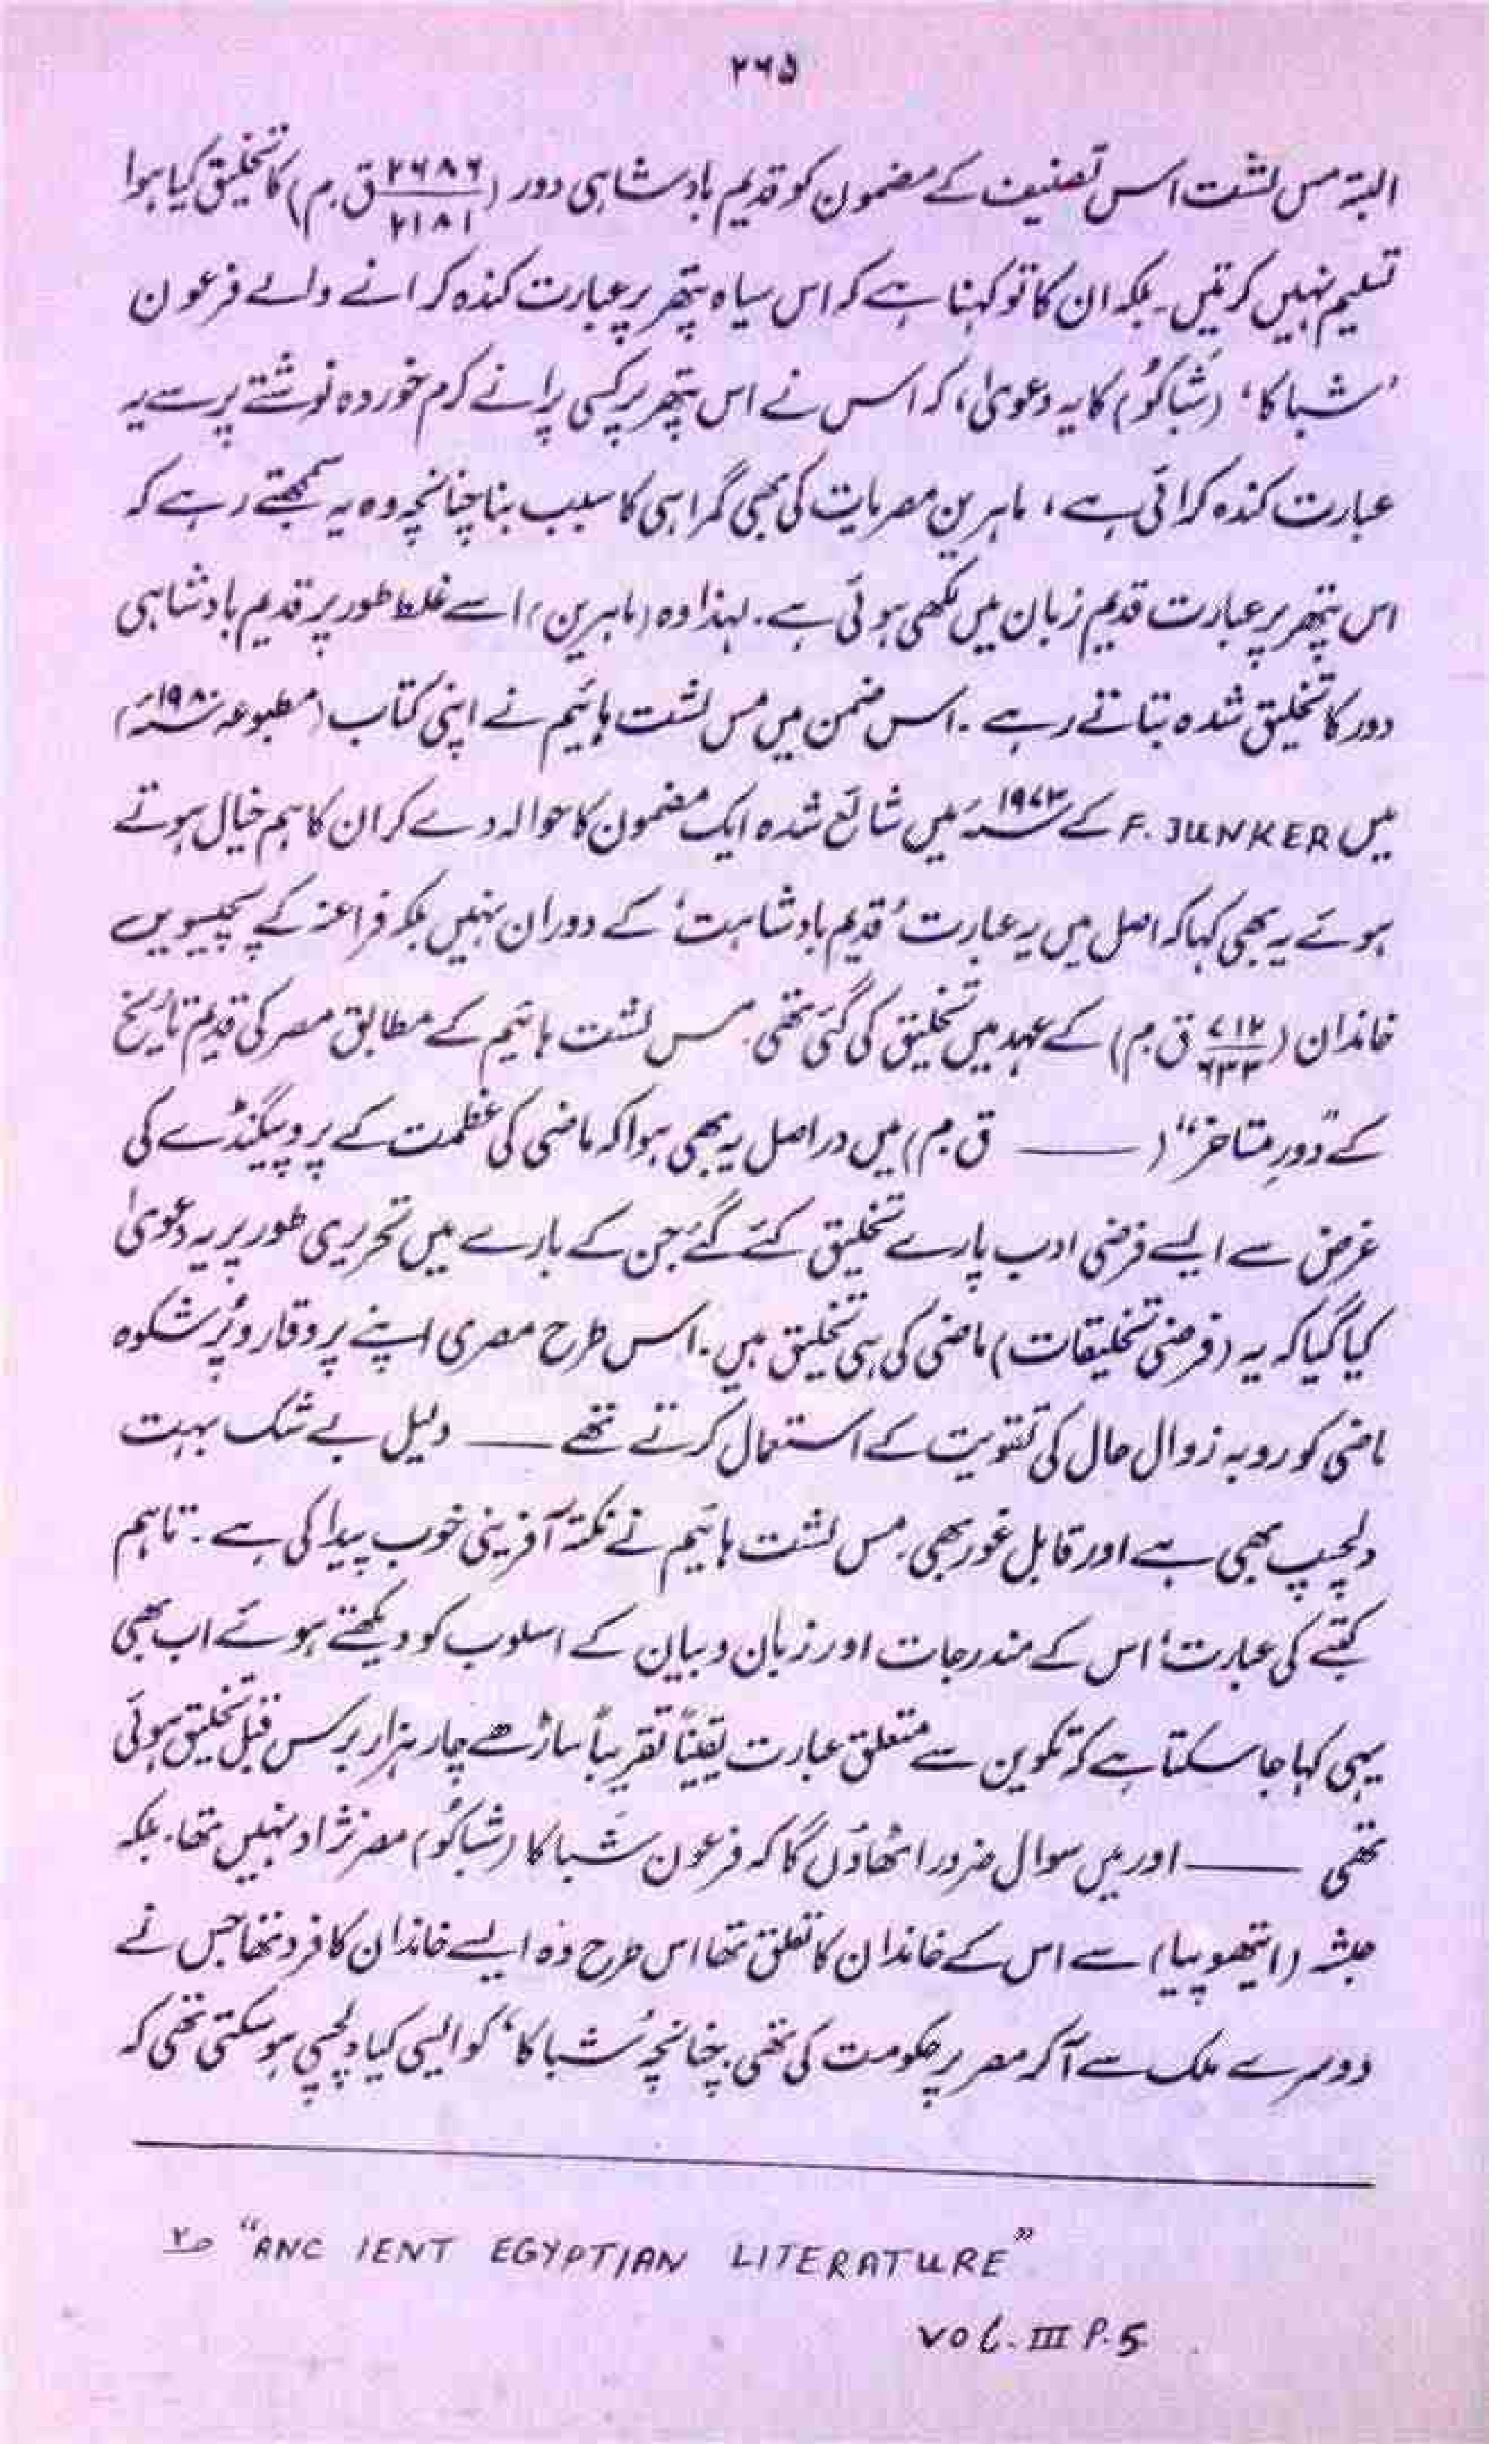 ۲۶۵
البتہ مس لشت اس تصنیف کے مضمون کو قدیم بادشاہی دور (۲۶۸۶/۲۱۸۱ ق م) کا تخلیق کیا ہوا
تسلیم نہیں کرتیں۔ بلکہ ان کا تو کہنا ہے کہ اس سیاہ پتھر پر عبارت کندہ کرانے والے فرعون
’شباکا‘ (شَباکُو) کا یہ دعویٰ، کہ اس نے اس پتھر پر کسی پرانے کرم خوردہ نوشتے پر سے یہ
عبارت کندہ کرائی ہے، ماہرین مصریات کی بھی گمراہی کا سبب بنا چنانچہ وہ یہ سمجھتے رہے کہ
اس پتھر پر عبارت قدیم زبان میں لکھی ہوئی ہے۔ لہذا وہ (ماہرین) اسے غلط طور پر قدیم بادشاہی
دور کا تخلیق شدہ بتاتے رہے۔ اس ضمن میں مس لشت ہائیم نے اپنی کتاب (مطبوعہ ۱۹۸۰ء)
میں F. JUNKER کے ۱۹۷۳ء میں شائع شدہ ایک مضمون کا حوالہ دے کر ان کا ہم خیال ہوتے
ہوئے یہ بھی کہا کہ اصل میں یہ عبارت ’قدیم بادشاہت‘ کے دوران نہیں بلکہ فراعنہ کے پچیسویں
خاندان (۷۱۲/۶۳۳ ق م) کے عہد میں تخلیق کی گئی تھی۔ مس لشت ہائیم کے مطابق مصر کی قدیم تاریخ
کے ”دورِ متاخر“ (—— ق م) میں دراصل یہ بھی ہوا کہ ماضی کی عظمت کے پروپیگنڈے کی
غرض سے ایسے فرضی ادب پارے تخلیق کئے گئے جن کے بارے میں تحریری طور پر یہ دعویٰ
کیا گیا کہ یہ (فرضی تخلیقات) ماضی کی ہی تخلیق ہیں۔ اس طرح مصری اپنے پروقار و پُرشکوہ
ماضی کو روبہ زوال حال کی تقویت کے استعمال کرتے تھے —— دلیل بے شک بہت
دلچسپ بھی ہے اور قابل غور بھی۔ مس لشت ہائیم نے نکتہ آفرینی خوب پیدا کی ہے۔ تاہم
کتبے کی عبارت، اس کے مندرجات اور زبان و بیان کے اسلوب کو دیکھتے ہوئے اب بھی
یہی کہا جا سکتا ہے کہ تکوین سے متعلق عبارت یقیناً تقریباً ساڑھے چار ہزار برس قبل تخلیق ہوئی
تھی —— اور میں سوال ضرور اٹھاؤں گا کہ فرعون شَباکا (شَباکُو) مصر نژاد نہیں تھا۔ بلکہ
حبشہ (ایتھوپیا) سے اس کے خاندان کا تعلق تھا اس طرح وہ ایسے خاندان کا فرد تھا جس نے
دوسرے ملک سے آکر مصر پر حکومت کی تھی۔ چنانچہ ’شباکا‘ کو ایسی کیا دلچسپی ہو سکتی تھی کہ
۲ "ANCIENT EGYPTIAN LITERATURE"
VOL. III P. 5